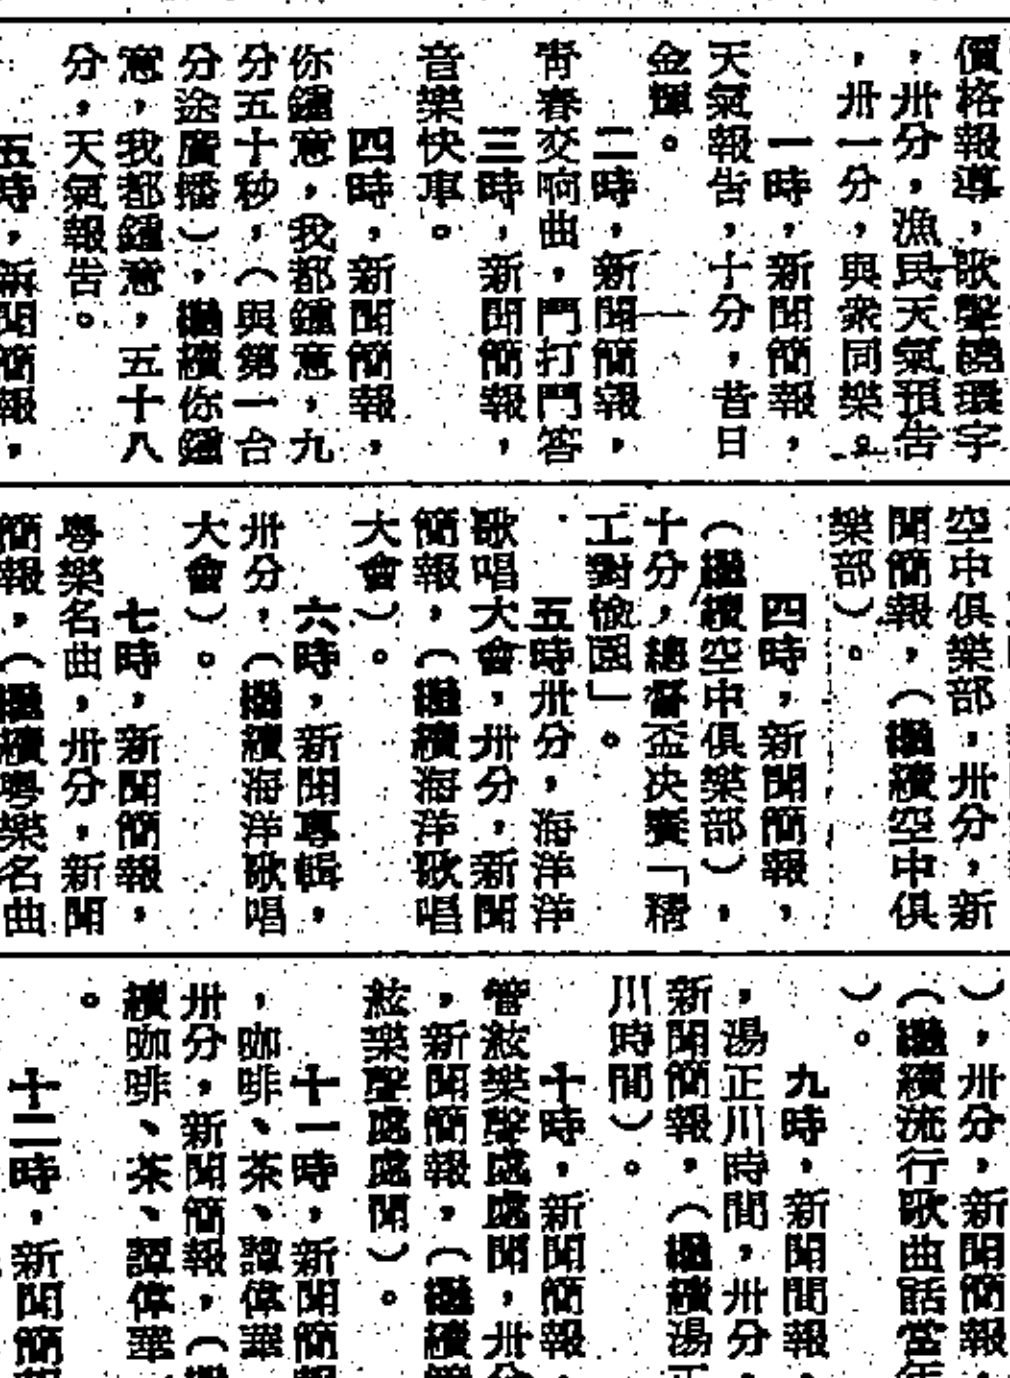 價格報導，歌聲繞環宇
，卅分，漁民天氣預告
，卅一分，與衆同樂。
一時，新聞簡報，
天氣報告，十分，昔日
金輝。
二時，新聞簡報，
青春交响曲，鬥打鬥答
三時，新聞簡報，
音樂快車。
四時，新聞簡報，
你鍾意，我都鍾意，九
分五十秒，（與第一台
分途廣播），繼續你鍾
意，我都鍾意，五十八
分，天氣報告。
五時，新聞簡報，
空中俱樂部，卅分，新
聞簡報，（繼續空中俱
樂部）。
四時，新聞簡報，
（繼續空中俱樂部），
十分，總督盃決賽「精
工對愉園」。
五時卅分，海洋洋
歌唱大會，卅分，新聞
簡報，（繼續海洋歌唱
大會）。
六時，新聞專輯，
卅分，（繼續海洋歌唱
大會）。
七時，新聞簡報，
粵樂名曲，卅分，新聞
簡報，（繼續粵樂名曲
），卅分，新聞簡報，
（繼續流行歌曲話當年
）。
九時，新聞間報，
，湯正川時間，卅分
新聞簡報，（繼續湯正
川時間）。
十時，新聞簡報，
管絃樂聲處處聞，卅分
，新聞簡報，（繼續管
絃樂聲處處聞）。
十一時，新聞簡報
，咖啡、茶、譚偉華
卅分，新聞簡報，（繼
續咖啡、茶、譚偉華
。
十二時，新聞簡報